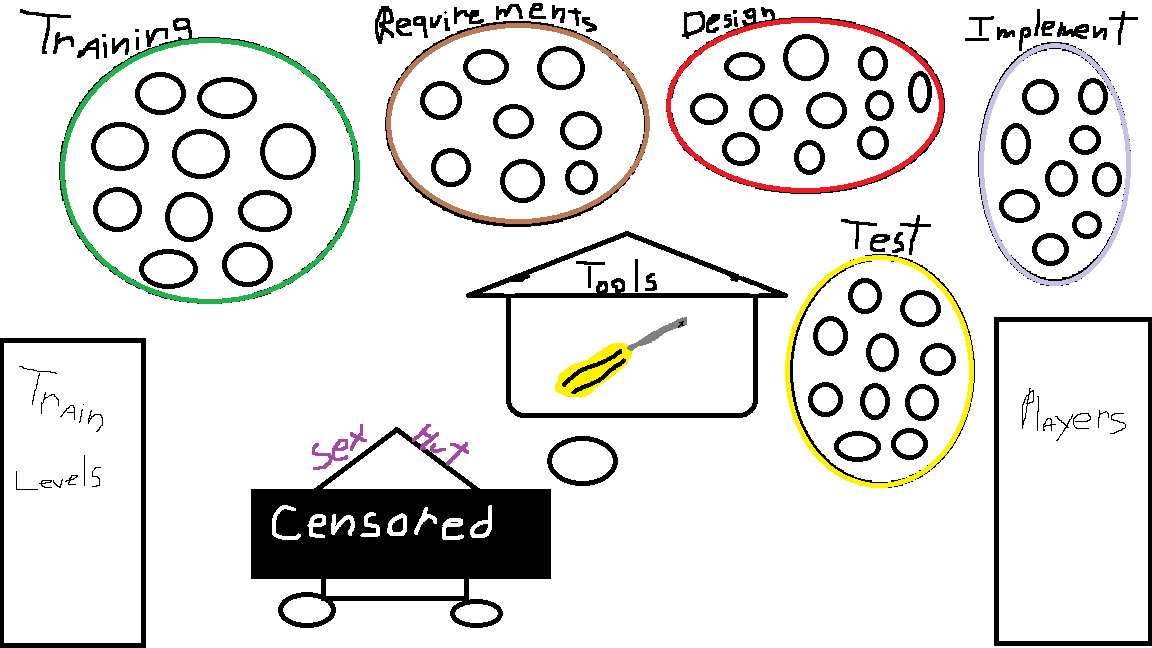 Training
Requirements
Design
Implement
Test
Tools
Train
Levels
Players
Sex Hut
Censored